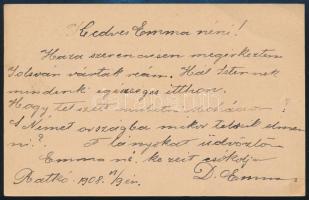 Kedves Emma néni!
Haza szerencsésen megérkeztem
Tolsván vártak reám. Hál Istennek
mindenki egésséges itthon.
Hogy tetszett
A Német országba mikor tetszik elmen
ni? Lányokat üdvözlöm
Emma né. kezeit csókolja
Ratkó 1908 D. Emma